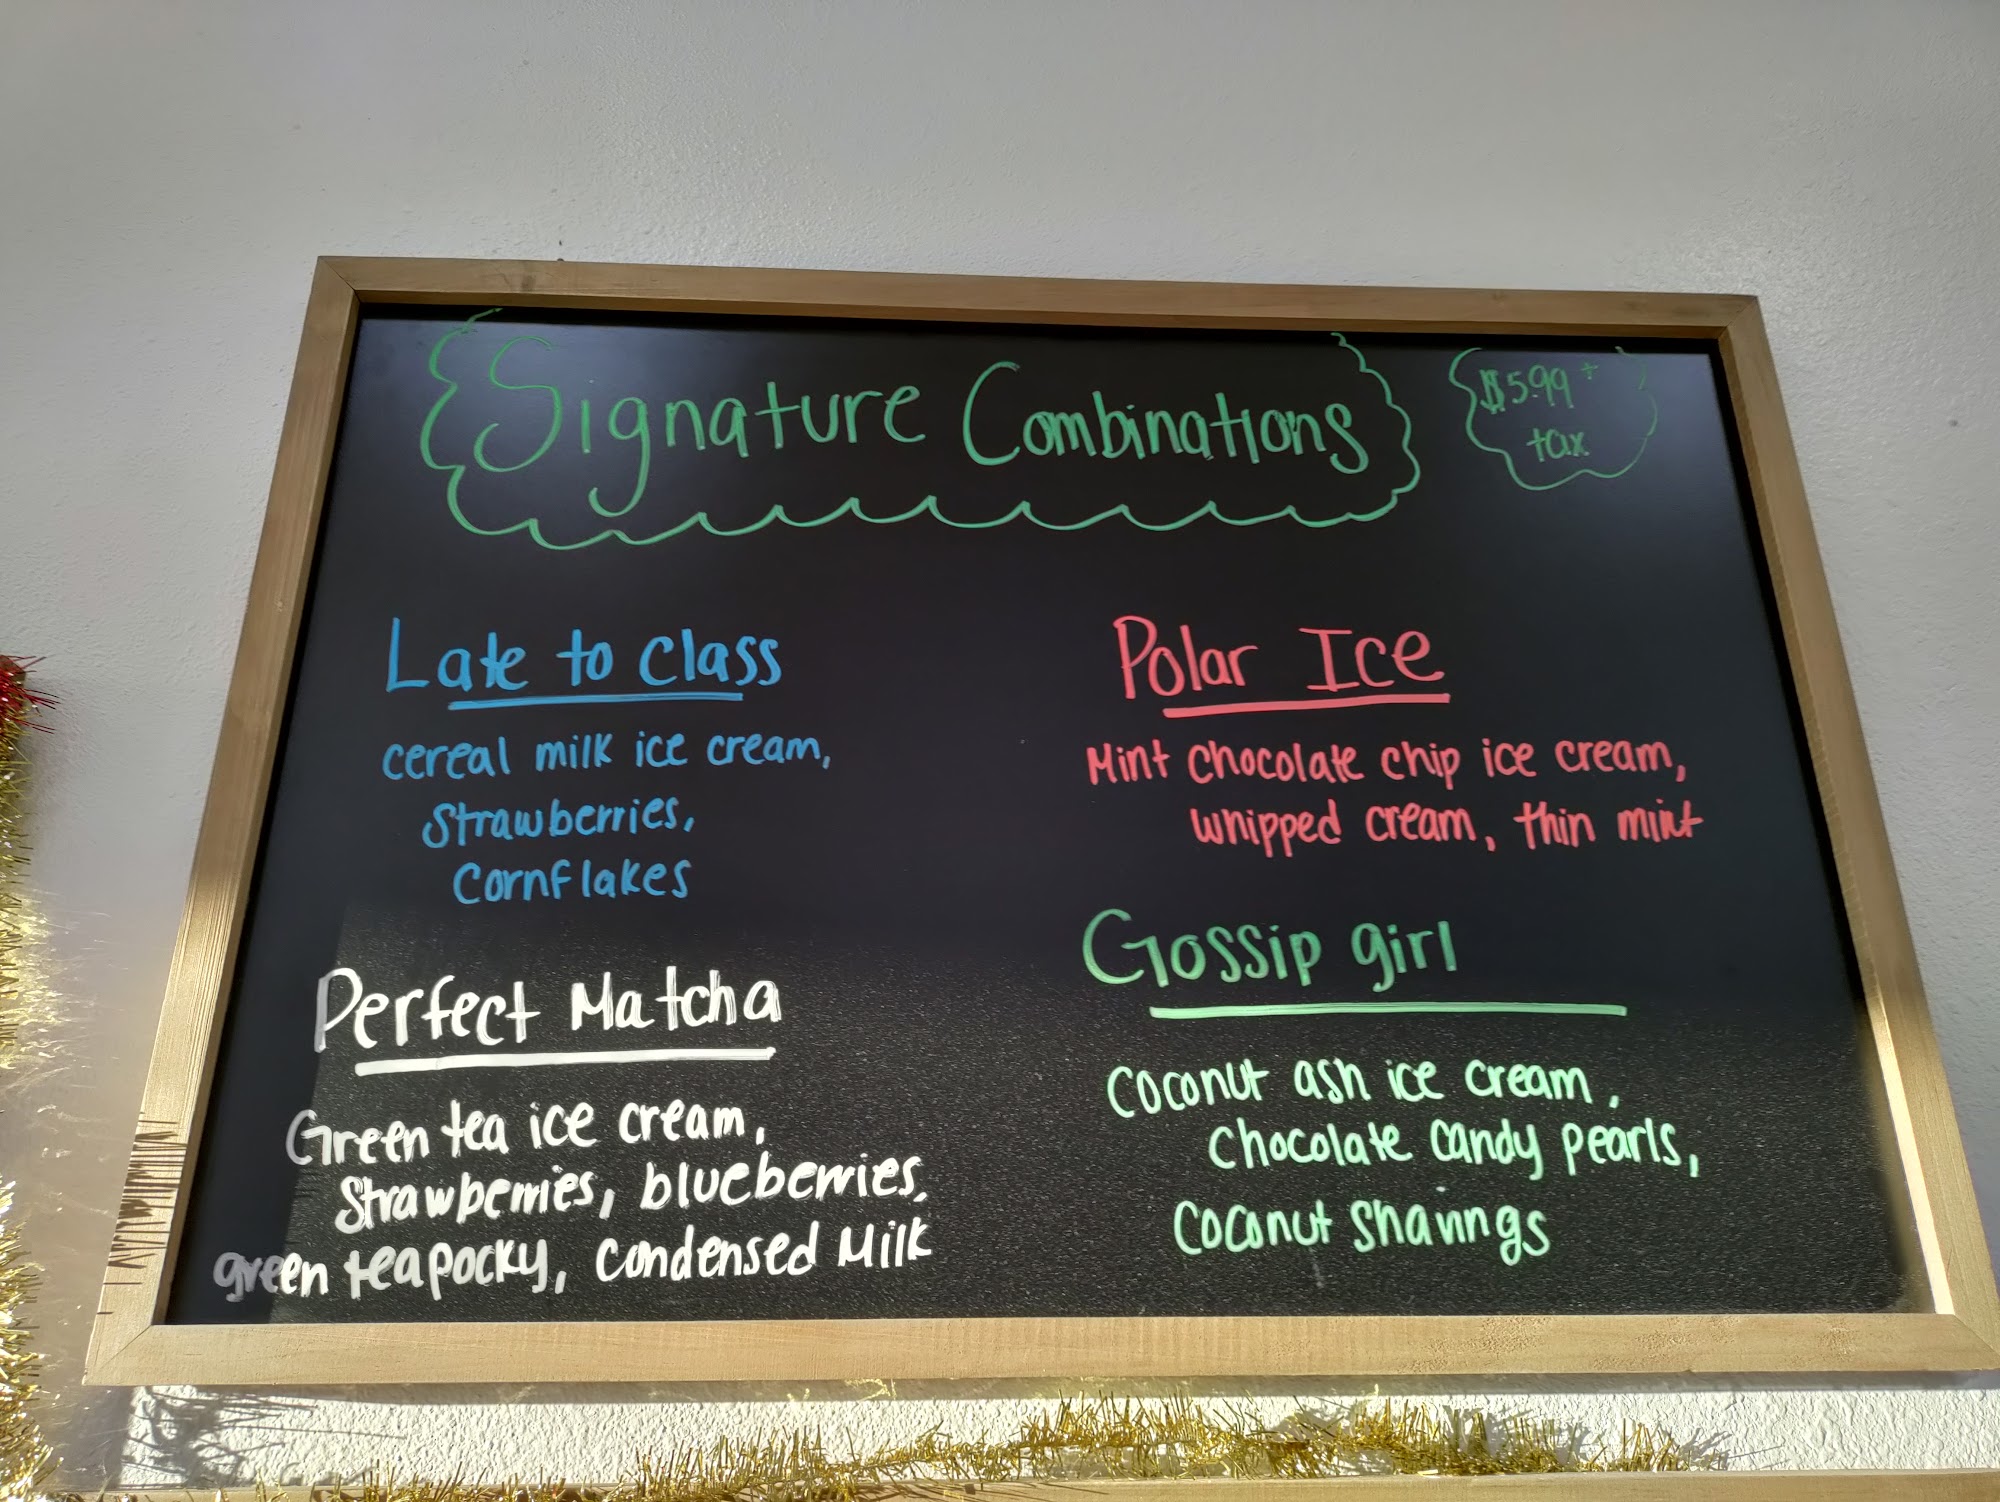 Signature Combinations
$5.99 +
tax
Late to class
cereal milk ice cream,
Strawberries,
Cornflakes
Polar Ice
Mint chocolate chip ice cream,
whipped cream, thin mint
Perfect Matcha
Green tea ice cream,
Strawberries, blueberries,
green tea pocky, condensed Milk
Gossip girl
Coconut ash ice cream,
Chocolate Candy pearls,
Coconut Shavings